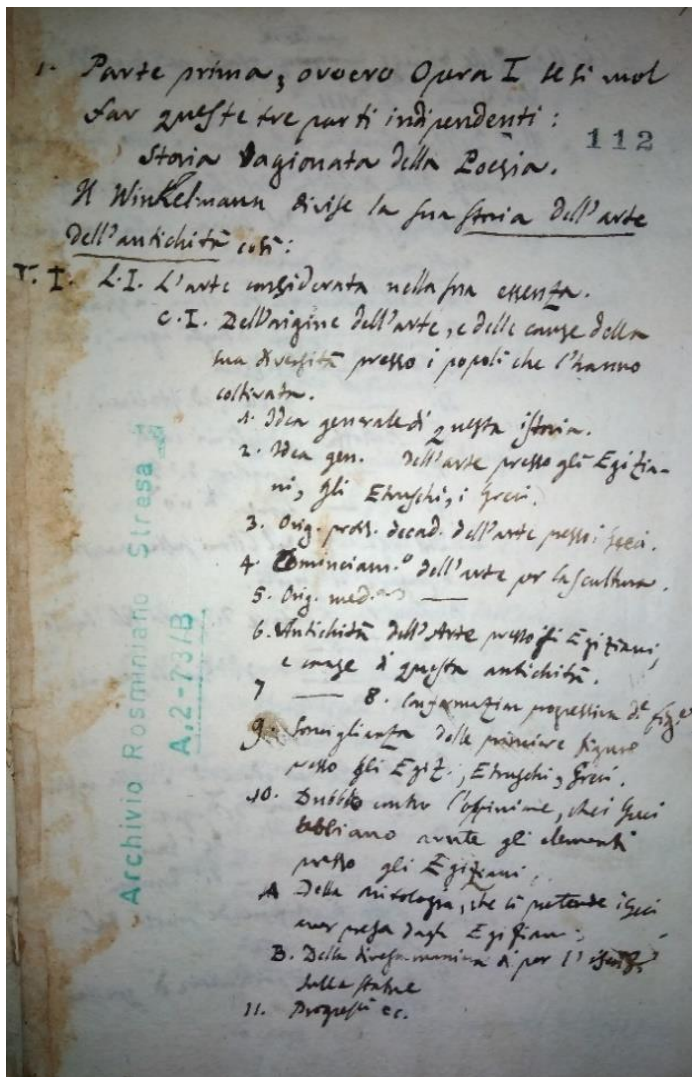 1. Parte prima, ovvero Opera I se si vuol
far queste tre parti indipendenti:
112
Storia Ragionata della Poesia.
Il Winkelmann divise la sua storia dell'arte
dell'antichità così:
T. I. L.I. L'arte considerata nella sua essenza.
C.I. Dell'origine dell'arte, e delle cause della
sua diversità presso i popoli che l'hanno
coltivata.
1. Idea generale di questa istoria.
2. Idea gen. dell'arte presso gli Egizia-
ni, gli Etruschi, i Greci.
3. Orig. progr. decad. dell'arte presso i Greci.
4. Cominciam.o dell'arte per la scultura.
5. Orig. med. —
6. Antichità dell'Arte presso gli Egiziani,
e cause di questa antichità.
7 — 8. Conformazion progressiva d. fig.e
9. Somiglianza delle primiere figure
presso gli Egiz., Etruschi, Greci.
10. Dubbio contro l'oppinione, che i Greci
abbiano avute gli elementi
presso gli Egiziani.
A Della mitologia, che si pretende i Greci
aver presa dagli Egiziani.
B. Della diversa maniera di por l'
sulla statue
11. Progressi ec.
Archivio Rosminiano Stresa
A.2-73/B